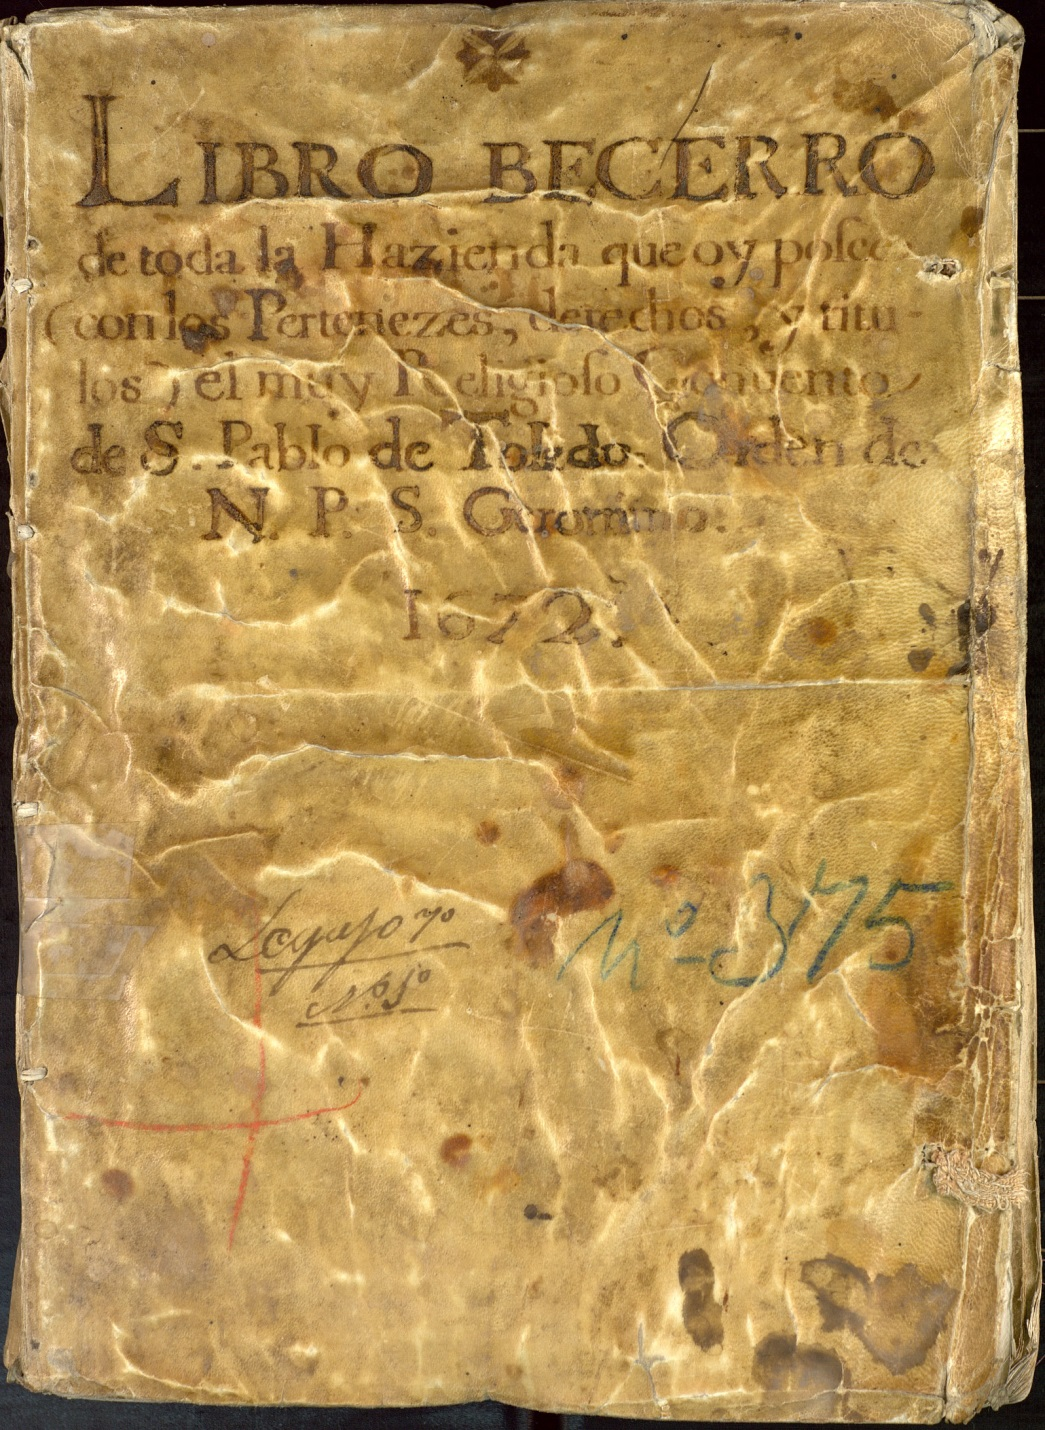 LIBRO BECERRO
de toda la Hazienda que oy posee
(con los Pertenezes, derechos, y titu-
los) el muy Religioso Conuento
de S. Pablo de Toledo. Orden de
N. P. S. Geronimo.
1672.
Legajo 7º
Nº 375